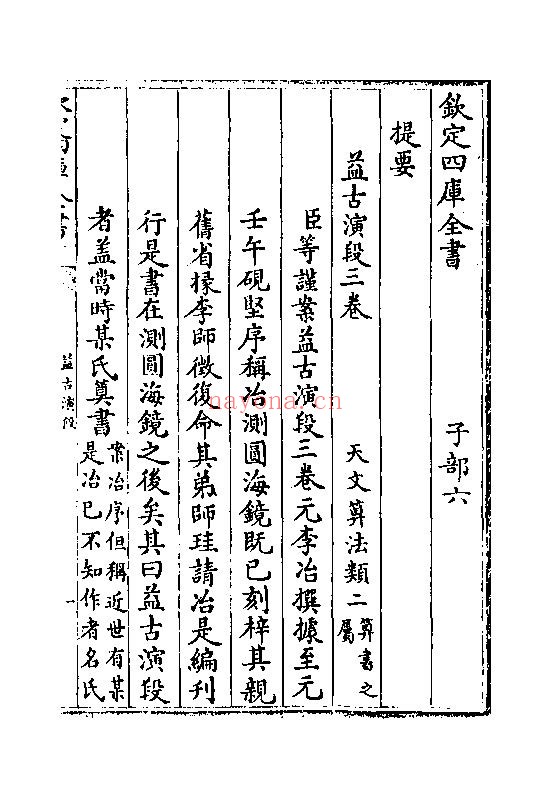 欽定四庫全書 子部六
提要
益古演段三卷 天文算法類二算書之屬
臣等謹案益古演段三卷元李冶撰據至元
壬午硯堅序稱冶測圓海鏡既已刻梓其親
舊省掾李師徵復命其弟師珪請冶是編刊
行是書在測圓海鏡之後矣其曰益古演段
者蓋當時某氏算書案冶序但稱近世有某是冶已不知作者名氏
益古演段 一
nayona.cn